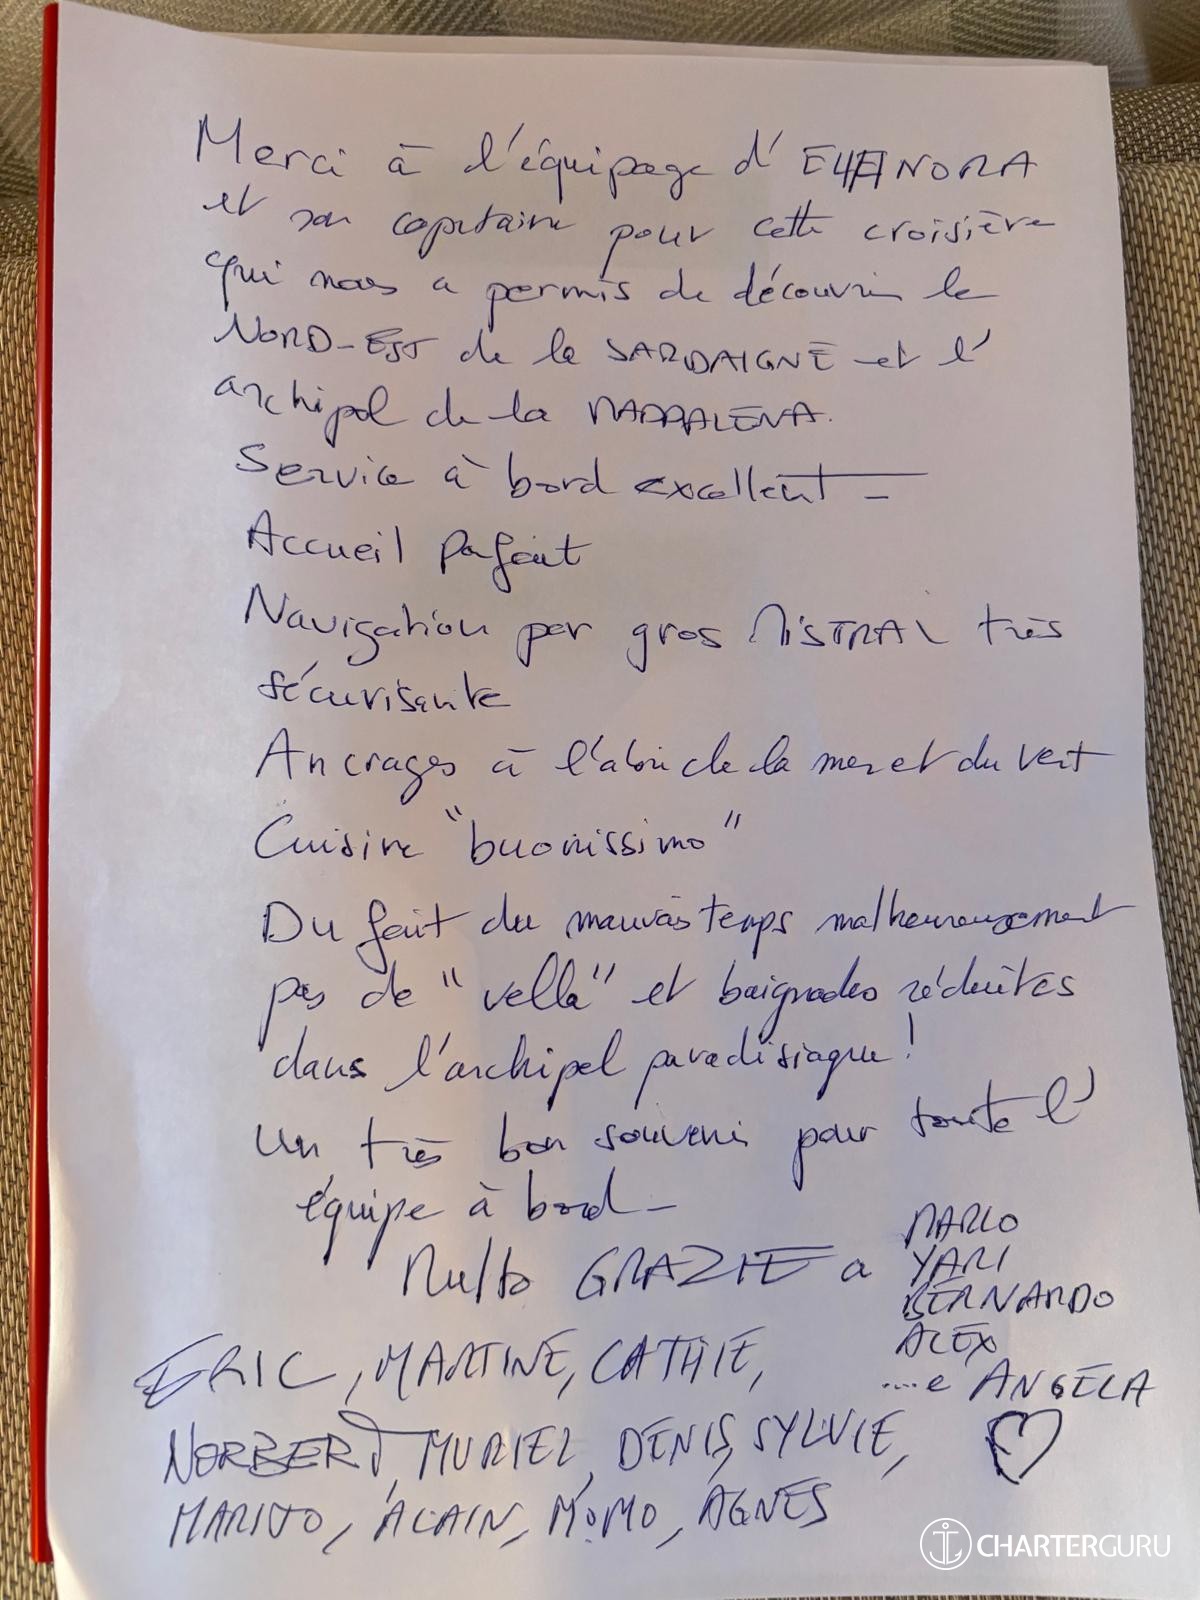 Merci à l'équipage d' ELEANORA
et son capitaine pour cette croisière
qui nous a permis de découvrir le
NORD-EST de la SARDAIGNE et l'
archipel de la MADDALENA.
Service à bord excellent -
Accueil parfait
Navigation par gros MISTRAL très
sécurisante
Ancrages à l'abri de la mer et du vent
Cuisine "buonissimo"
Du fait du mauvais temps malheureusement
pas de "vella" et baignades réduites
dans l'archipel paradisiaque !
Un très bon souvenir pour toute l'
équipe à bord -
Multo GRAZIE a MARCO
YARI
BERNARDO
ALEX
....e ANGELA
ERIC, MARTINE, CATHIE,
NORBERT, MURIEL, DENIS, SYLVIE,
ALAIN, MOMO, AGNES
CHARTERGURU